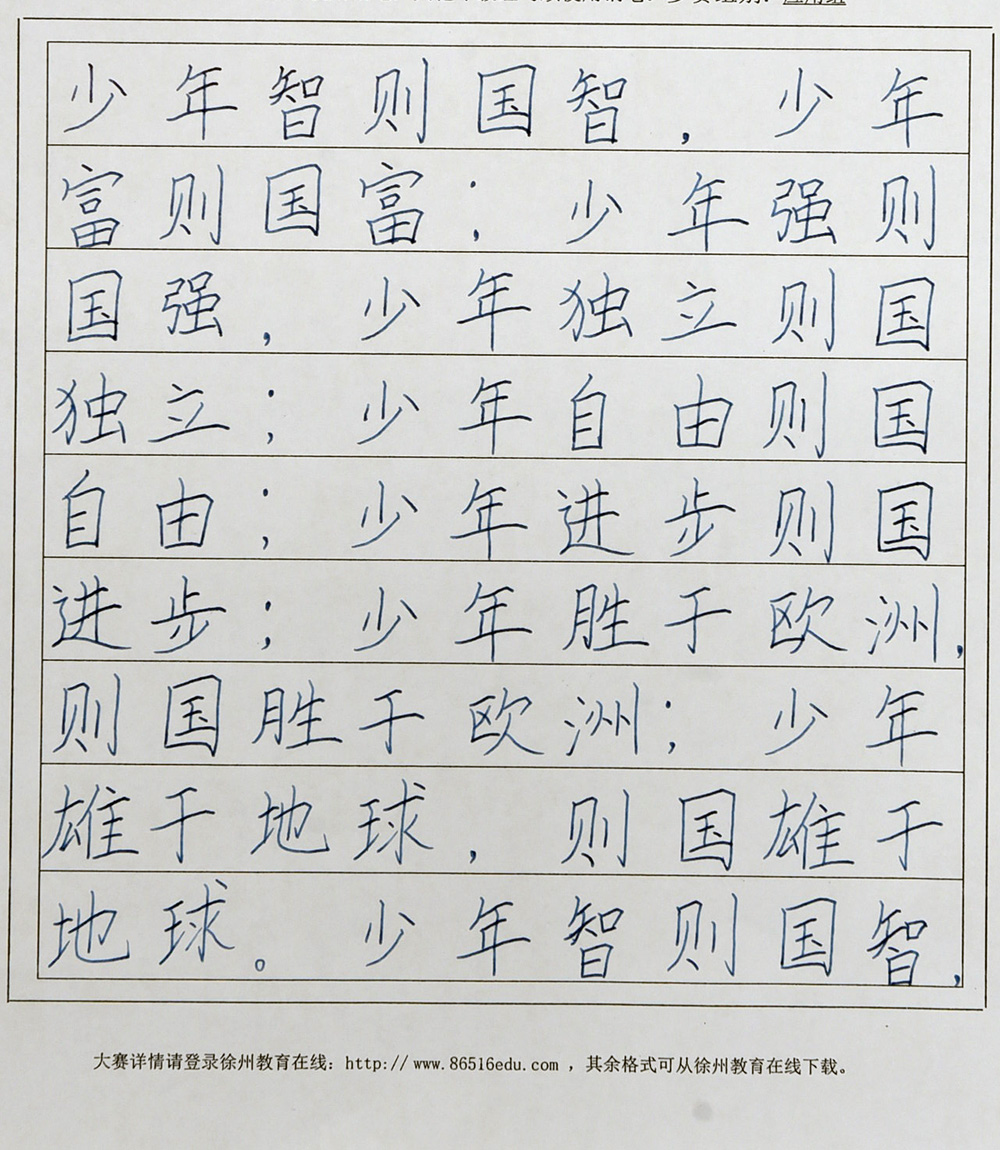 少年智则国智，少年
富则国富；少年强则
国强，少年独立则国
独立；少年自由则国
自由；少年进步则国
进步；少年胜于欧洲，
则国胜于欧洲；少年
雄于地球，则国雄于
地球。少年智则国智，
大赛详情请登录徐州教育在线：http://www.86516edu.com，其余格式可从徐州教育在线下载。